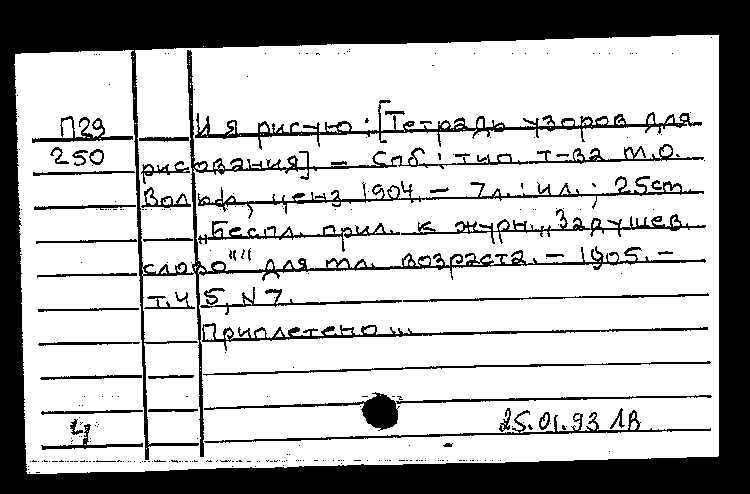 П29 И я рисую : [Тетрадь узоров для
250 рисования]. – Спб. : тип. т-ва М.О.
Вольф, ценз 1904. – 7л. : ил. ; 25см.
„Беспл. прил. к журн. „Задушев.
слово"" для мл. возраста. – 1905. –
т. 45, N 7.
Приплетено...
4 25.01.93 ЛВ